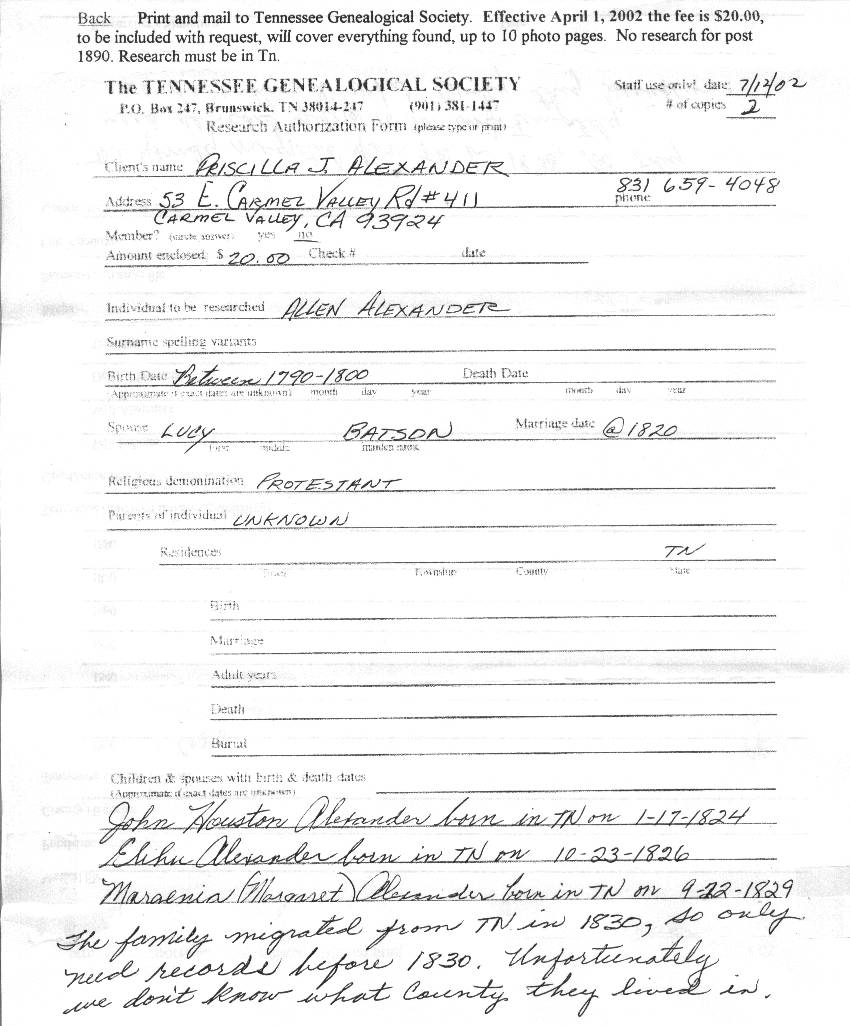 Back Print and mail to Tennessee Genealogical Society. Effective April 1, 2002 the fee is $20.00,
to be included with request, will cover everything found, up to 10 photo pages. No research for post
1890. Research must be in Tn.
The TENNESSEE GENEALOGICAL SOCIETY Staff use only! date: 7/12/02
P.O. Box 247, Brunswick, TN 38014-247 (901) 381-1447 # of copies 2
Research Authorization Form (please type or print)
Client's name PRISCILLA J. ALEXANDER
Address 53 E. CARMEL VALLEY Rd # 411 831 659-4048
CARMEL VALLEY, CA 93924 phone
Member? (circle answer) yes no
Amount enclosed: $ 20.00 Check # date
Individual to be researched ALLEN ALEXANDER
Surname spelling variants
Birth Date Between 1790-1800 Death Date
(Approximate if exact dates are unknown) month day year month day year
Spouse LUCY BATSON Marriage date @ 1820
First middle maiden name
Religious denomination PROTESTANT
Parents of individual UNKNOWN
Residences TN
Town Township County State
Birth
Marriage
Adult years
Death
Burial
Children & spouses with birth & death dates
(Approximate if exact dates are unknown)
John Houston Alexander born in TN on 1-17-1824
Elihu Alexander born in TN on 10-23-1826
Maraenia (Margaret) Alexander born in TN on 9-22-1829
The family migrated from TN in 1830, so only
need records before 1830. Unfortunately
we don't know what County they lived in.